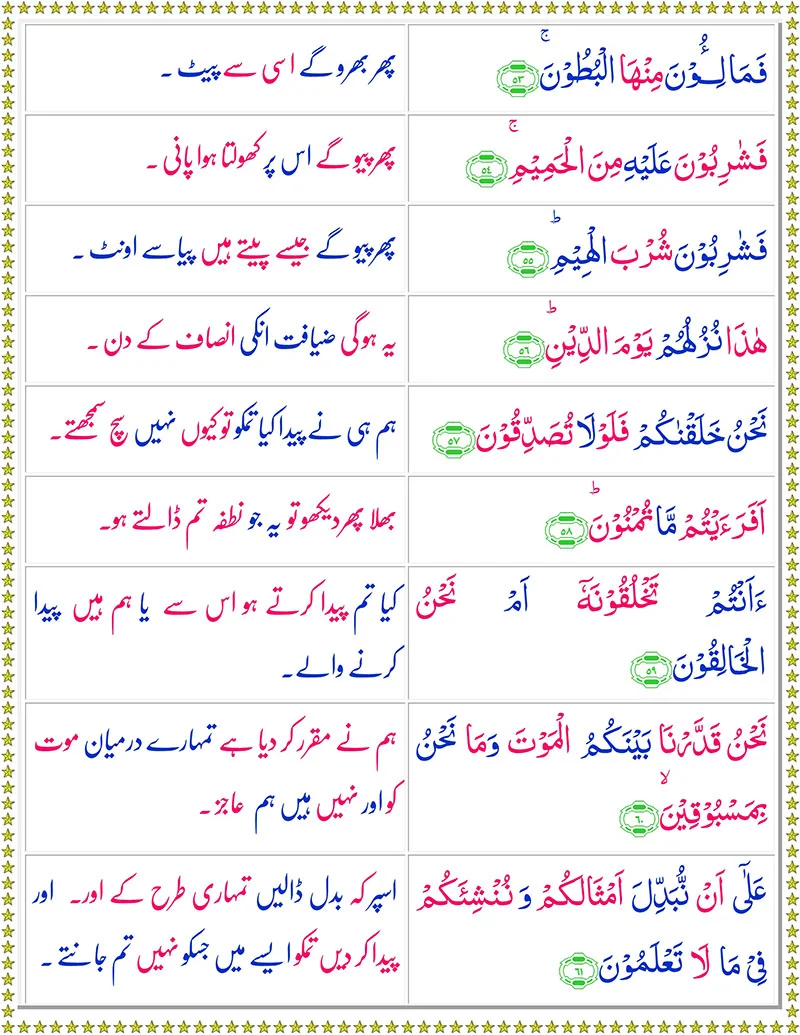 فَمَالِـُٔوْنَ مِنْهَا الْبُطُوْنَ ۚ ﴿٥٣﴾
پھر بھرو گے اسی سے پیٹ ۔
فَشٰرِبُوْنَ عَلَيْهِ مِنَ الْحَمِيْمِ ۚ ﴿٥٤﴾
پھر پیو گے اس پر کھولتا ہوا پانی ۔
فَشٰرِبُوْنَ شُرْبَ الْهِيْمِ ؕ ﴿٥٥﴾
پھر پیو گے جیسے پیتے ہیں پیاسے اونٹ ۔
هٰذَا نُزُلُهُمْ يَوْمَ الدِّيْنِ ؕ ﴿٥٦﴾
یہ ہوگی ضیافت انکی انصاف کے دن ۔
نَحْنُ خَلَقْنٰكُمْ فَلَوْلَا تُصَدِّقُوْنَ ﴿٥٧﴾
ہم ہی نے پیدا کیا تمکو تو کیوں نہیں سچ سمجھتے ۔
اَفَرَءَيْتُمْ مَّا تُمْنُوْنَ ؕ ﴿٥٨﴾
بھلا پھر دیکھو تو یہ جو نطفہ تم ڈالتے ہو۔
ءَاَنْتُمْ تَخْلُقُوْنَهٗۤ اَمْ نَحْنُ
الْخَالِقُوْنَ ﴿٥٩﴾
کیا تم پیدا کرتے ہو اس سے یا ہم ہیں پیدا
کرنے والے۔
نَحْنُ قَدَّرْنَا بَيْنَكُمُ الْمَوْتَ وَمَا نَحْنُ
بِمَسْبُوْقِيْنَ ۙ ﴿٦٠﴾
ہم نے مقرر کر دیا ہے تمہارے درمیان موت
کو اور نہیں ہیں ہم عاجز ۔
عَلٰٓى اَنْ نُّبَدِّلَ اَمْثَالَكُمْ وَ نُنْشِئَكُمْ
فِيْ مَا لَا تَعْلَمُوْنَ ﴿٦١﴾
اسپر کہ بدل ڈالیں تمہاری طرح کے اور۔ اور
پیدا کر دیں تمکو ایسے میں جسکو نہیں تم جانتے ۔